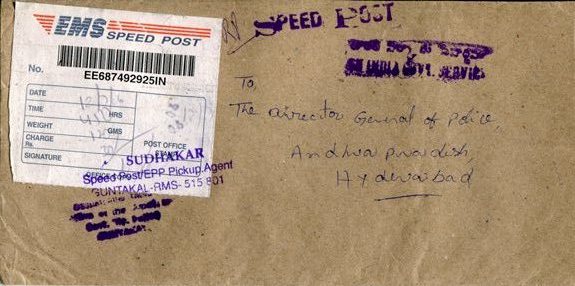 EMS
SPEED POST
No.
EE687492925IN
DATE
TIME HRS
WEIGHT GMS
CHARGE
Rs.
SIGNATURE
POST OFFICE
SUDHAKAR
Speed Post/EPP Pickup Agent
GUNTAKAL-RMS-515 801
SPEED POST
To,
The Director General of Police,
Andhra pradesh,
Hyderabad